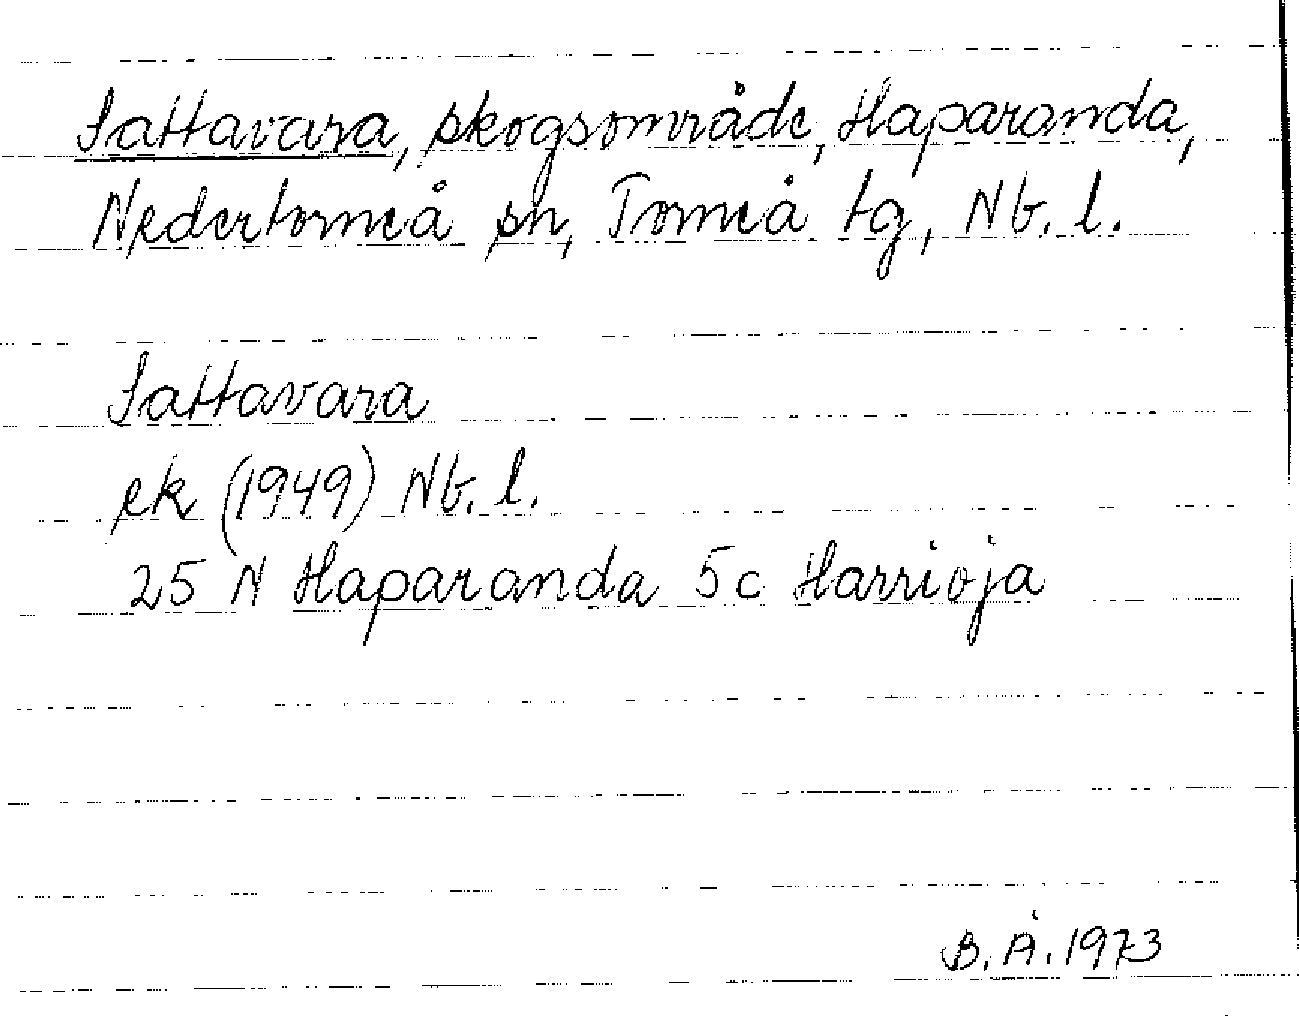 Sattavara, skogsområde, Haparanda,
Nedertorneå sn, Torneå tg, Nb. l.
Sattavara
ek (1949) Nb. l.
25 N Haparanda 5c Harrioja
B. Å. 1973